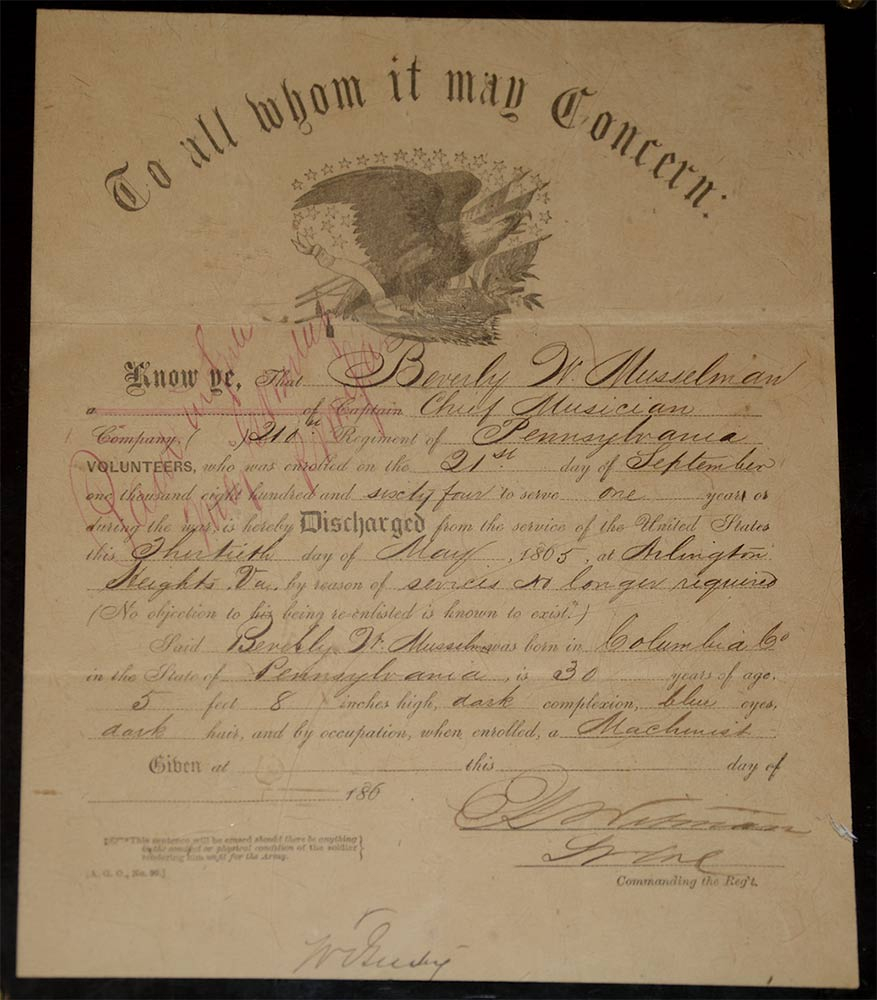 To all whom it may Concern:
Know ye, That Beverly W. Musselman
a of Captain Chief Musician
Company, ( 210th Regiment of Pennsylvania
VOLUNTEERS, who was enrolled on the 21st day of September
one thousand eight hundred and sixty four to serve one years or
during the war, is hereby Discharged from the service of the United States
this Thirtieth day of May, 1865, at Arlington
Heights, Va, by reason of services No longer required
(No objection to his being re-enlisted is known to exist.*)
Said Beverly W. Musselman was born in Columbia Co
in the State of Pennsylvania, is 30 years of age,
5 feet 8 inches high, dark complexion, blue eyes,
dark hair, and by occupation, when enrolled, a Machinist
Given at this day of
186 .
Witman
Commanding the Reg't.
*This sentence will be erased should there be anything
in the conduct or physical condition of the soldier
rendering him unfit for the Army.
[A. G. O., No. 99.]
Paid in full